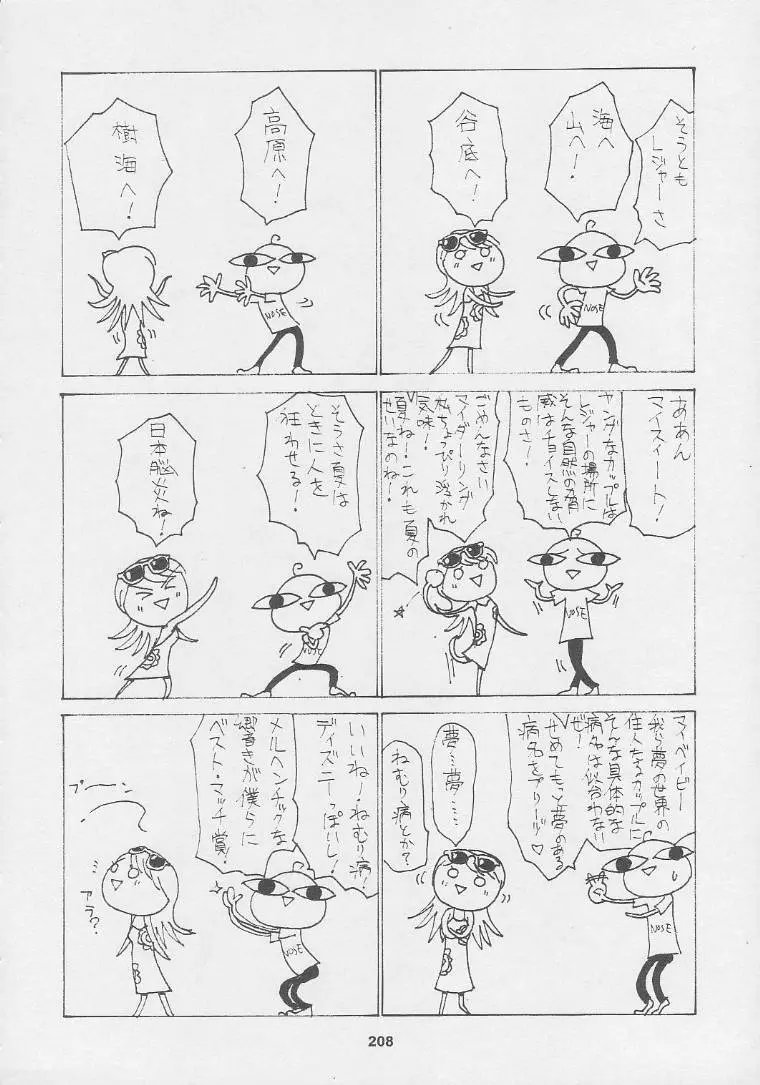 そうとも
レジャーさ
海へ
山へ!
NOSE
谷底へ!
高原へ!
NOSE
樹海へ!
ああん
マイスィート!
ヤングなカップルは
レジャーの場所に
そんな自然の脅
威はチョイスしない
ものさ!
NOSE
ごめんなさい
マイダーリング
私ちょっぴり浮かれ
気味!
夏ね!これも夏の
せいなのね!
そうさ夏は
ときに人を
狂わせる!
NOSE
日本脳炎ね!
マイベイビー
我ら夢の世界の
住人たるカップルに
そんな具体的な
病名は似合わない
ぜ!
せめてもっと夢のある
病名をプリーヅ♡
NOSE
夢…夢……
ねむり病とか?
いいねー!ねむり病!
ディズニーっぽいし!
メルヘンチックな
響きが僕らに
ベスト・マッチ賞!
NOSE
プーーン
アラ?
208